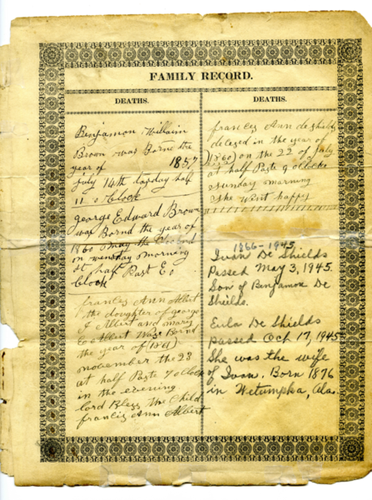 FAMILY RECORD.
DEATHS.
Benjamon William
Brown was Borne the
year of 1857
July 14th tusday half
11 o Clock
george Edward Brown
was Bornd the year of
1860 may the 2
on wensday morning
at half Past
Clock
francis Ann Albert
the daughter of george
J Albert and mary
C Albert Was Bornd
the year of
november the 28
at half Paste 7 o Clock
in the evening
lord Bless the Child
francis Ann Albert
DEATHS.
francis Ann de shields
deceased in the year of
1860 on the 22 of July
at half Paste 9 oclocke
sunday morning
she went happy
1866-1945.
Ivan De Shields
Passed May 3, 1945.
Son of Benjamon De
Shields.
Eula De Shields
passed Oct 17, 1945
She was the wife
of Ivan. Born 1876
in Wetumpka, Ala.